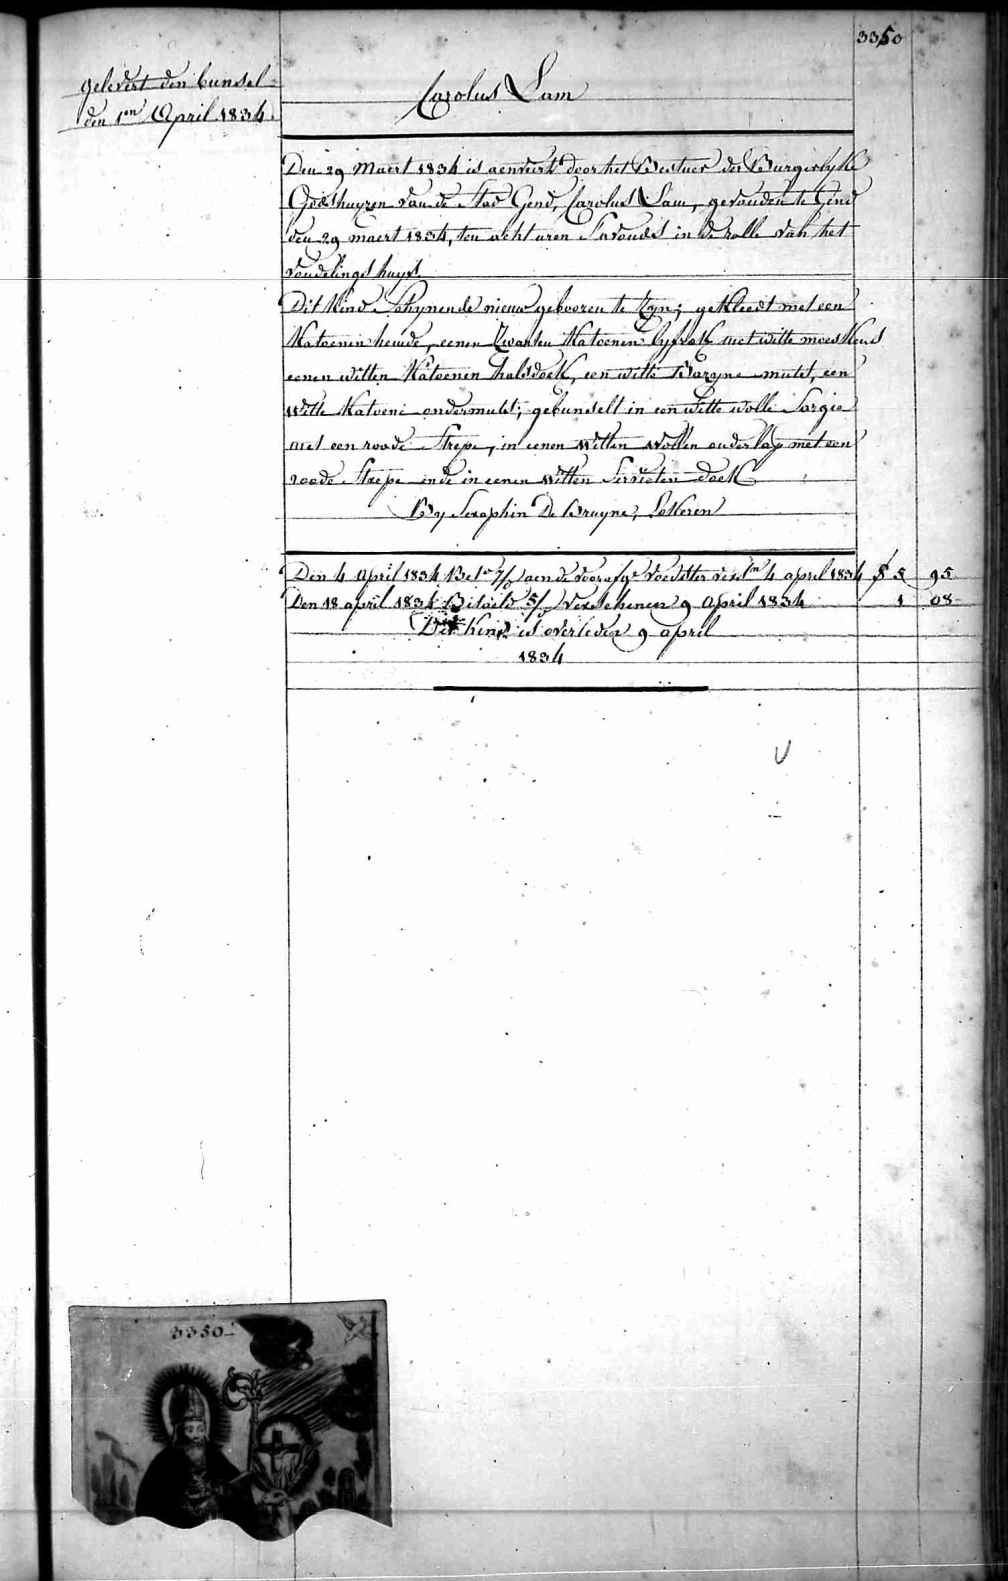 3350
gelevert den bunsel
den 1en April 1834.
Carolus Lam
Den 29 Maert 1834 is aenveirt door het Bestuer der Burgerlyke
Godshuyzen van de Stad Gend, Carolus Lam, gevonden te Gend
den 29 maert 1834, ten acht uren s'avonds in de rolle van het
vondelings huys.
Dit Kind schynende nieuw gebooren te Zyn; gekleedt met een
Katoenen hemde, eenen Zwarten Katoenen lyfrok met witte moeskens
eenen witten Katoenen halsdoek, een witte Bazyne muts, een
witte Katoene ondermuts; gebunselt in een witte wolle Sargie
met een roode Strepe, in eenen witten wollen onderlap met een
roode Strepe ende in eenen witten Servieten doek
By Seraphin De Bruyne, Lokeren
Den 4 April 1834 Bet. aen de voedster 4 april 1834 5 95
Den 18 april 1834 Betaeld 9 April 1834 1 08
Dit kind is overleden 9 april
1834
3350